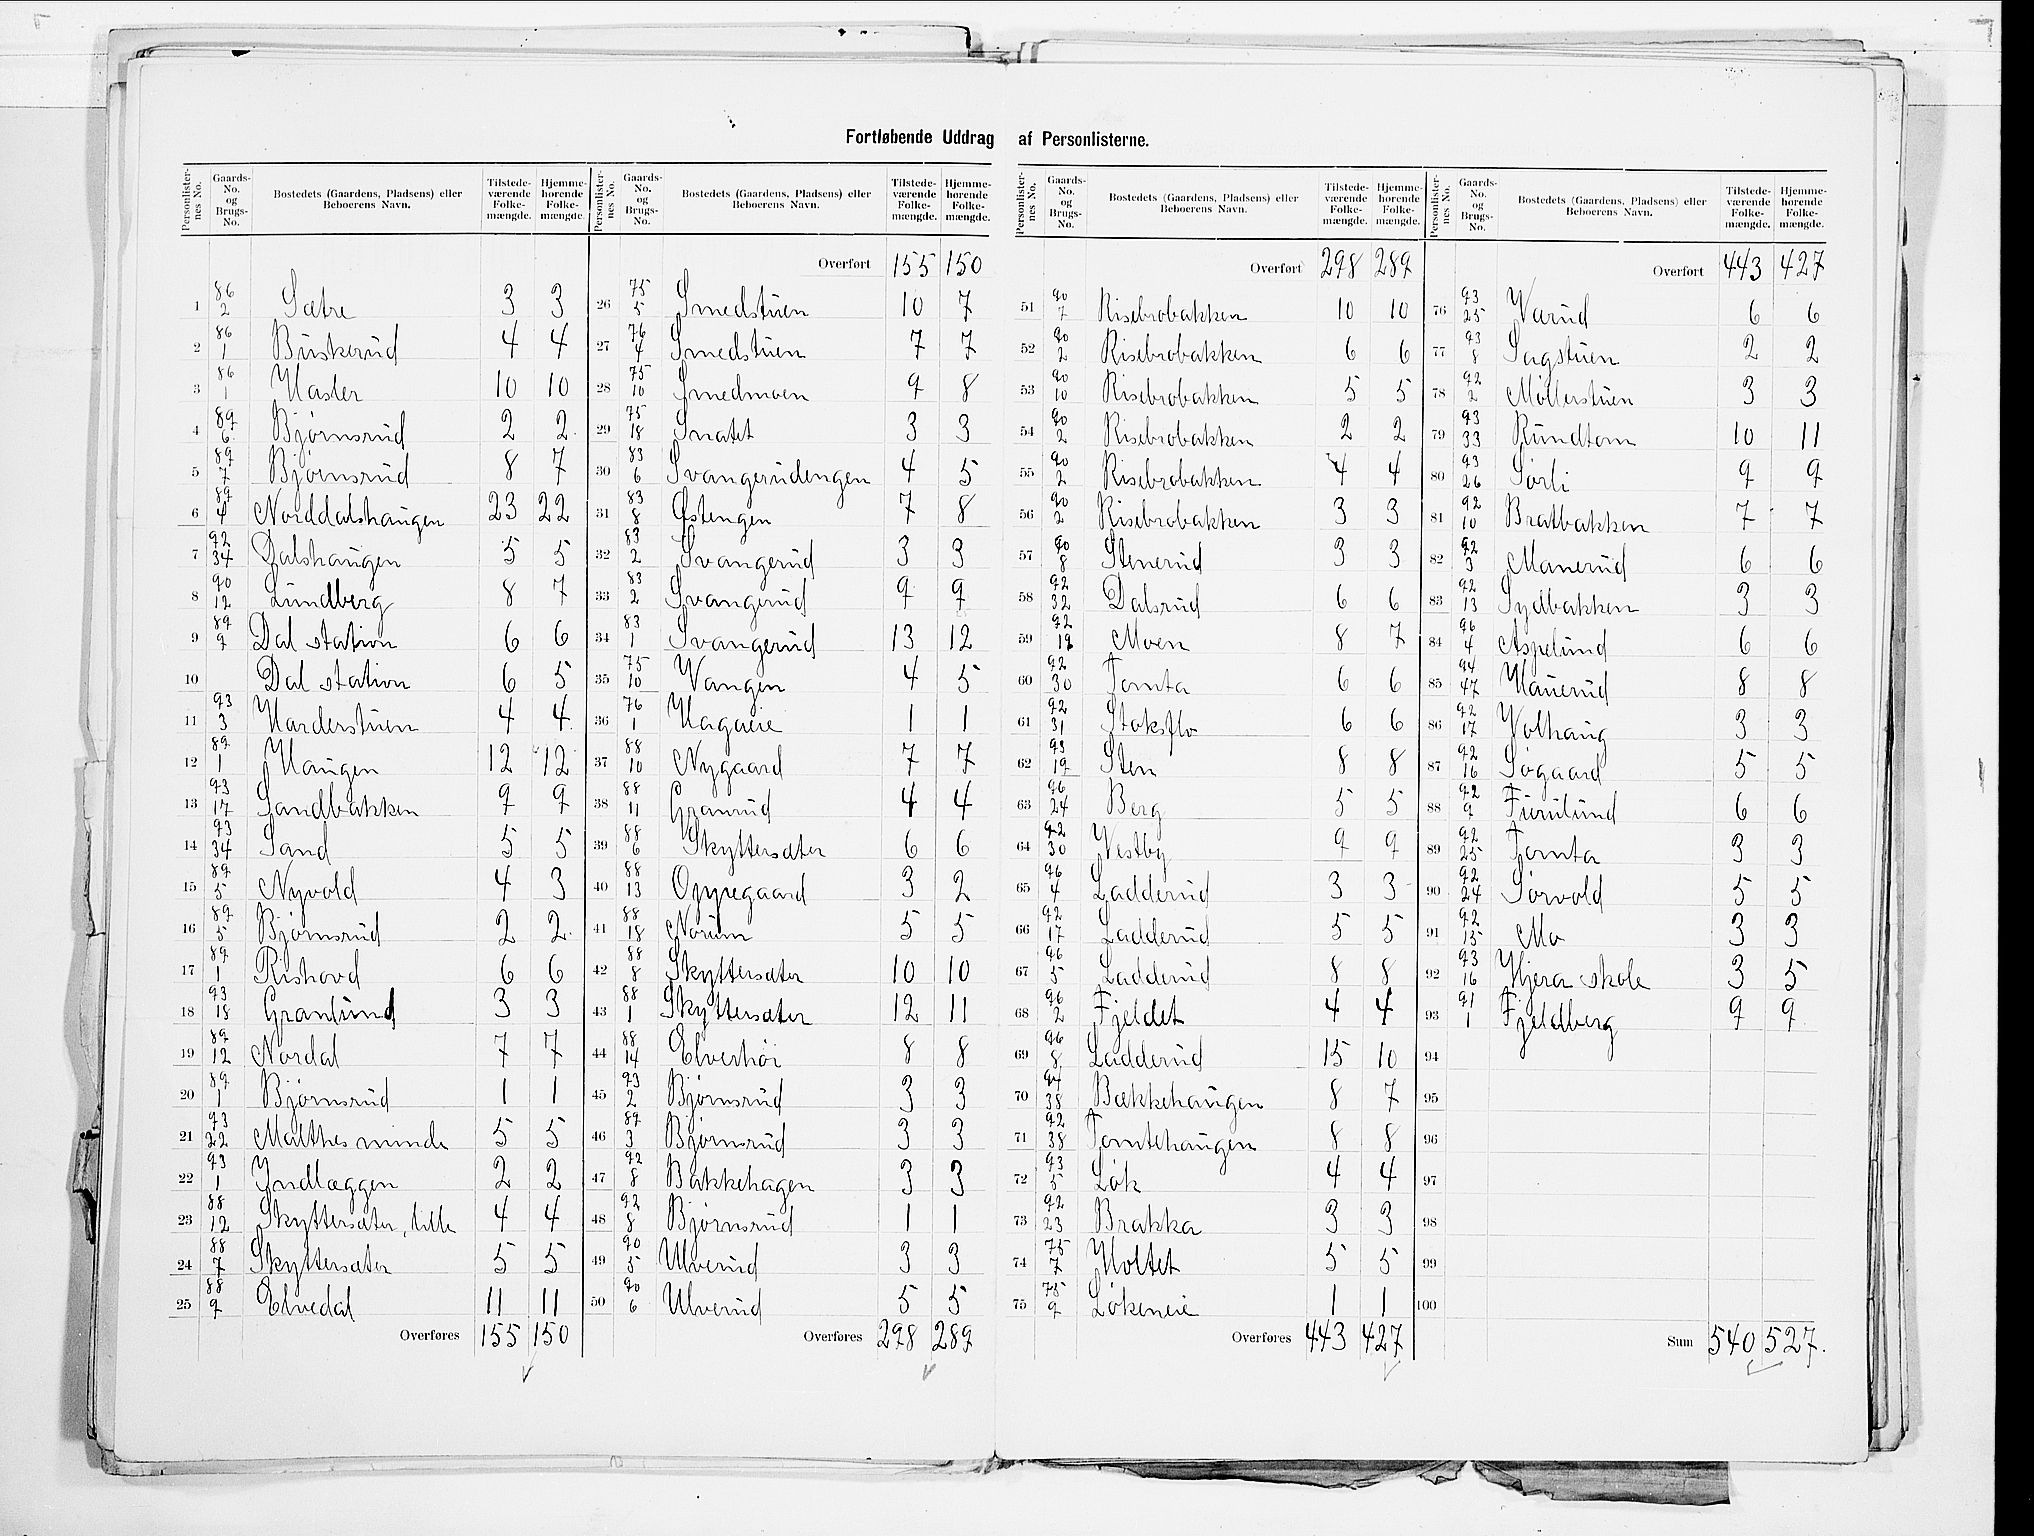 Fortløbende Uddrag af Personlisterne.
Personlisternes No. Gaards-No. og Brugs-No. Bostedets (Gaardens, Pladsens) eller Beboerens Navn. Tilstedeværende Folkemængde. Hjemmehorende Folkemængde.
1 86/2 Sætre 3 3
2 86/1 Buskerud 4 4
3 86/1 Hasler 10 10
4 89/6 Bjørnsrud 2 2
5 89/7 Bjørnsrud 8 7
6 89/4 Norddalshaugen 23 22
7 92/34 Dalshaugen 5 5
8 90/12 Lundberg 8 7
9 89/9 Dal station 6 6
10 Dal station 6 5
11 93/3 Harderstuen 4 4
12 89/1 Haugen 12 12
13 93/17 Sandbakken 9 9
14 93/34 Sand 5 5
15 89/5 Nyvold 4 3
16 89/5 Bjørnsrud 2 2
17 89/1 Rishovd 6 6
18 93/18 Granlund 3 3
19 89/12 Nordal 7 7
20 89/1 Bjørnsrud 1 1
21 93/22 Malthes minde 5 5
22 93/1 Indlæggen 2 2
23 88/12 Skyttersæter, lille 4 4
24 88/7 Skyttersæter 5 5
25 88/9 Elvedal 11 11
Overføres 155 150
Personlisternes No. Gaards-No. og Brugs-No. Bostedets (Gaardens, Pladsens) eller Beboerens Navn. Tilstedeværende Folkemængde. Hjemmehorende Folkemængde.
Overført 155 150
26 75/5 Smedstuen 10 7
27 76/4 Smedstuen 7 7
28 75/10 Smedmoen 9 8
29 75/18 Snatet 3 3
30 83/6 Svangerudengen 4 5
31 83/8 Østengen 7 8
32 83/2 Svangerud 3 3
33 83/2 Svangerud 9 9
34 83/1 Svangerud 13 12
35 75/10 Vangen 4 5
36 76/1 Hagaeie 1 1
37 88/10 Nygaard 7 7
38 88/11 Granrud 4 4
39 88/6 Skyttersæter 6 6
40 88/13 Oppegaard 3 2
41 88/18 Norum 5 5
42 88/8 Skyttersæter 10 10
43 88/1 Skyttersæter 12 11
44 88/14 Elverhøi 8 8
45 93/2 Bjørnsrud 3 3
46 89/3 Bjørnsrud 3 3
47 92/8 Bakkehagen 3 3
48 92/8 Bjørnsrud 1 1
49 90/5 Ulverud 3 3
50 90/6 Ulverud 5 5
Overføres 298 289
Personlisternes No. Gaards-No. og Brugs-No. Bostedets (Gaardens, Pladsens) eller Beboerens Navn. Tilstedeværende Folkemængde. Hjemmehorende Folkemængde.
Overført 298 289
51 90/7 Risebrobakken 10 10
52 90/2 Risebrobakken 6 6
53 90/10 Risebrobakken 5 5
54 90/2 Risebrobakken 2 2
55 90/2 Risebrobakken 4 4
56 90/2 Risebrobakken 3 3
57 90/8 Stenerud 3 3
58 92/32 Dalsrud 6 6
59 92/19 Moen 8 7
60 92/30 Tomta 6 6
61 92/31 Stoksflo 6 6
62 93/19 Sten 8 8
63 96/24 Berg 5 5
64 92/30 Vestby 9 9
65 96/4 Ladderud 3 3
66 92/17 Ladderud 5 5
67 96/5 Ladderud 8 8
68 96/2 Fjeldet 4 4
69 96/8 Ladderud 15 10
70 94/38 Bækkehaugen 8 7
71 92/38 Tomtehaugen 8 8
72 93/5 Løk 4 4
73 92/23 Brakka 3 3
74 75/7 Holtet 5 5
75 75/9 Løkeneie 1 1
Overføres 443 427
Personlisternes No. Gaards-No. og Brugs-No. Bostedets (Gaardens, Pladsens) eller Beboerens Navn. Tilstedeværende Folkemængde. Hjemmehorende Folkemængde.
Overført 443 427
76 93/25 Værud 6 6
77 93/8 Sagstuen 2 2
78 92/2 Møllerstuen 3 3
79 93/33 Rundtom 10 11
80 93/26 Sørli 9 9
81 92/10 Bratbakken 7 7
82 92/3 Manerud 6 6
83 92/13 Sydbakken 3 3
84 96/4 Aspelund 6 6
85 94/47 Hauerud 8 8
86 92/17 Volhaug 3 3
87 92/16 Søgaard 5 5
88 92/9 Furulund 6 6
89 92/25 Tomta 3 3
90 92/24 Sørvold 5 5
91 92/15 Mo 3 3
92 93/16 Hjera skole 3 5
93 91/1 Fjeldberg 9 9
94
95
96
97
98
99
100
Sum 540 527.